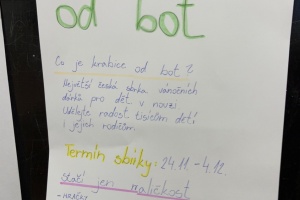 od bot
Co je krabice od bot?
Největší česká sbírka vánočních
dárků pro děti v nouzi
Udělejte radost tisícům dětí
i jejich rodičům
Termín sbírky: 24.11. - 4.12.
Stačí jen maličkost